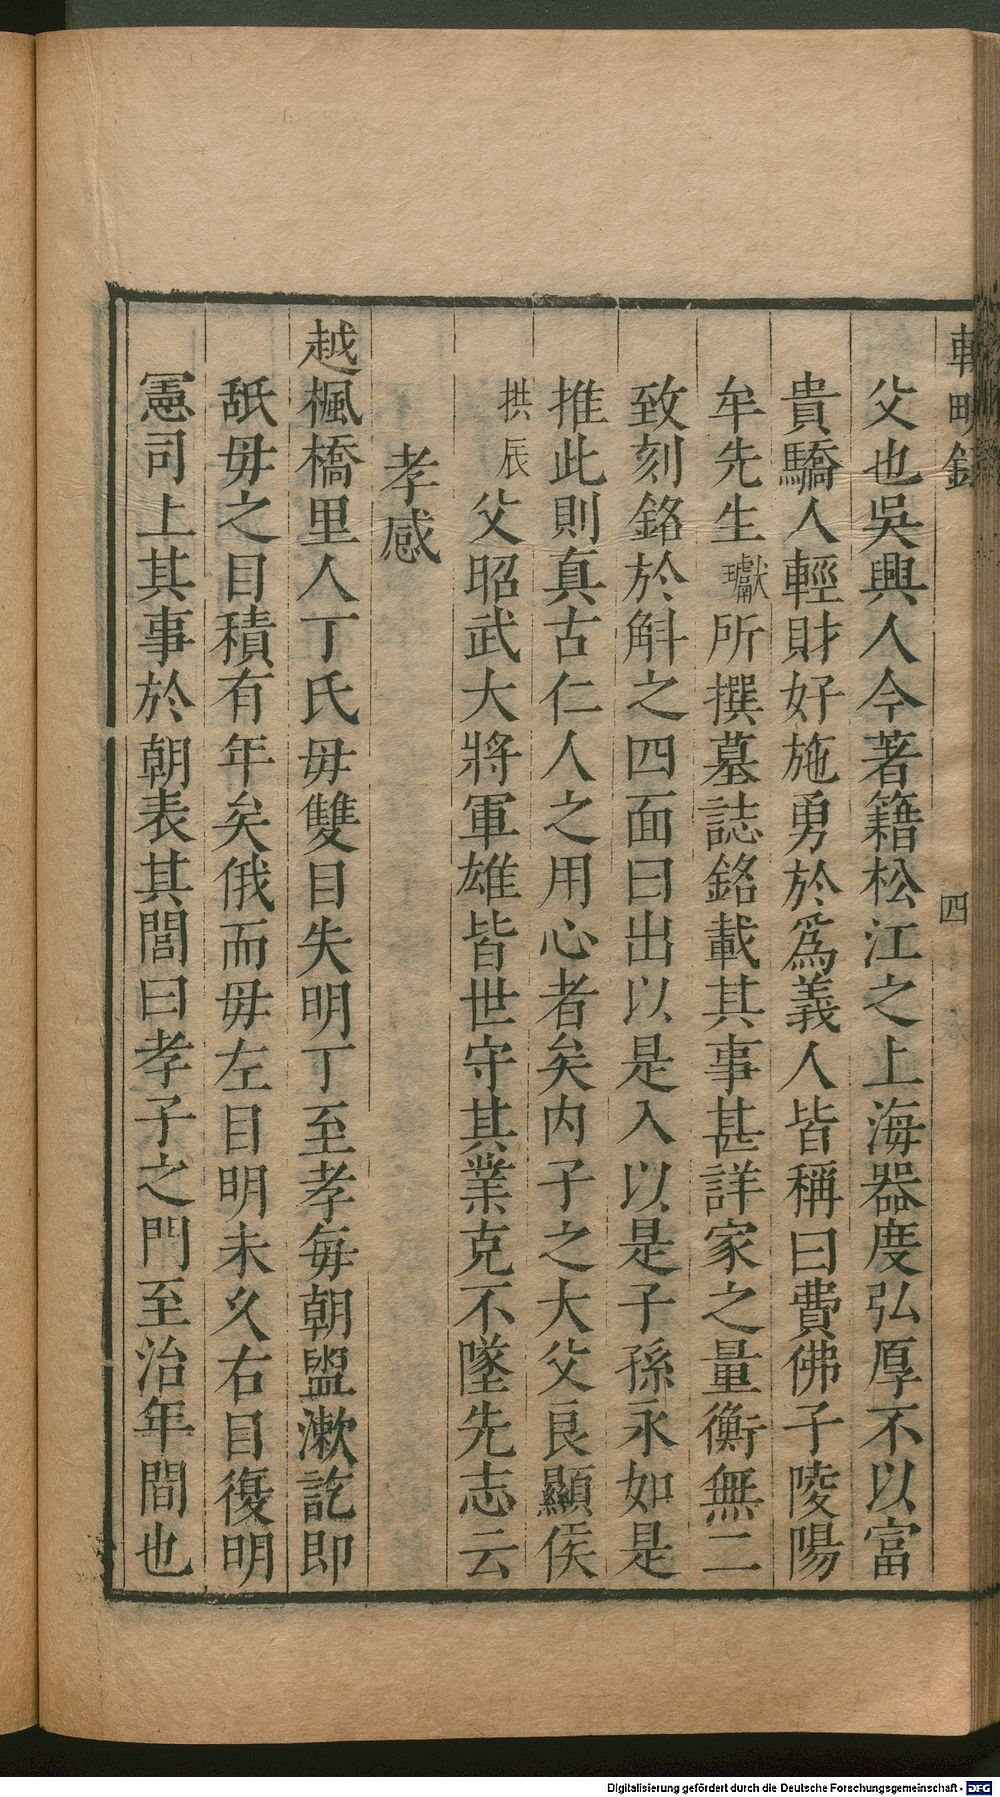 輟畊錄
四
父也吳興人今著籍松江之上海器度弘厚不以富
貴驕人輕財好施勇於爲義人皆稱曰費佛子陵陽
牟先生巘所撰墓誌銘載其事甚詳家之量衡無二
致刻銘於斛之四面曰出以是入以是子孫永如是
推此則真古仁人之用心者矣内子之大父良顯侯
拱辰父昭武大將軍雄皆世守其業克不墜先志云
孝感
越楓橋里人丁氏毋雙目失明丁至孝每朝盥漱訖即
舐毋之目積有年矣俄而毋左目明未久右目復明
憲司上其事於朝表其閭曰孝子之門至治年間也
Digitalisierung gefördert durch die Deutsche Forschungsgemeinschaft - DFG